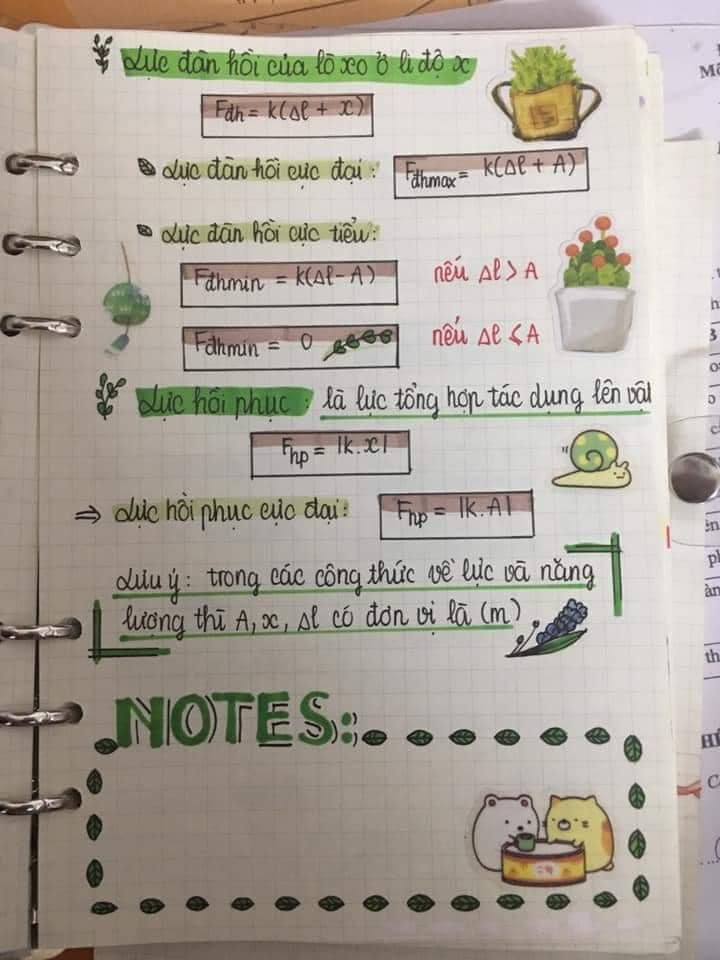 Lực đàn hồi của lò xo ở li độ x
Fđh = k(Δl + x)
Lực đàn hồi cực đại: Fđhmax = k(Δl + A)
Lực đàn hồi cực tiểu:
Fđhmin = k(Δl - A) nếu Δl > A
Fđhmin = 0 nếu Δl ≤ A
Lực hồi phục: là lực tổng hợp tác dụng lên vật
Fhp = |k.x|
⇒ Lực hồi phục cực đại: Fhp = |k.A|
Lưu ý: trong các công thức về lực và năng
lượng thì A, x, Δl có đơn vị là (m)
NOTES: